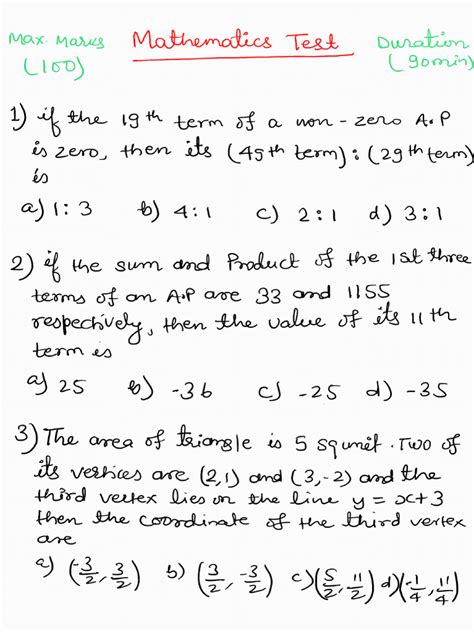 Max. Marks Mathematics Test Duration
(100) (90min)
1) if the 19th term of a non-zero A.P
is zero, then its (49th term) : (29th term)
is
a) 1:3 b) 4:1 c) 2:1 d) 3:1
2) if the sum and Product of the 1st three
terms of an A.P are 33 and 1155
respectively, then the value of its 11th
term is
a) 25 b) -36 c) -25 d) -35
3) The area of triangle is 5 squnit. Two of
its vertices are (2,1) and (3,-2) and the
third vertex lies on the line y = x+3
then the coordinate of the third vertex
are
a) (-3/2, 3/2) b) (3/2, -3/2) c) (5/2, 11/2) d) (-1/4, 11/4)